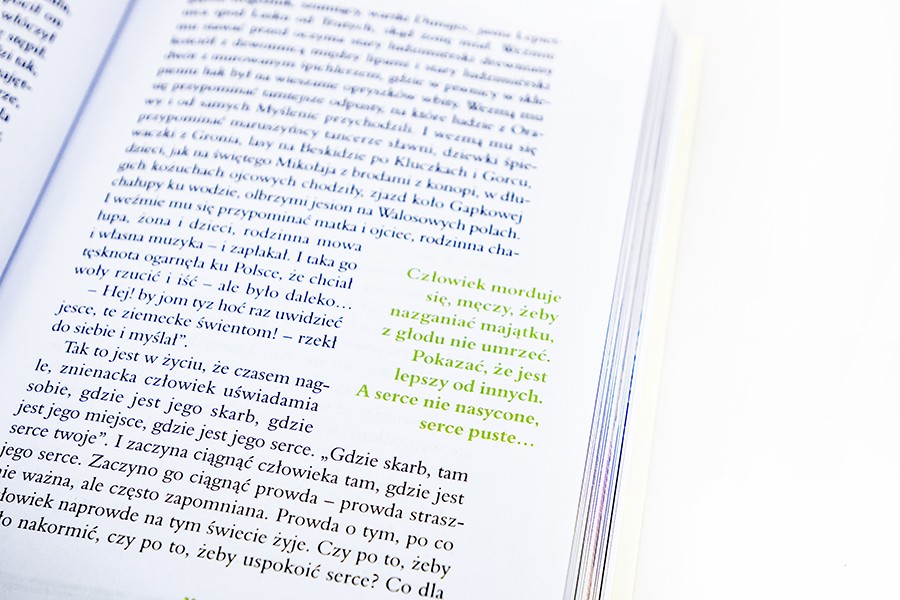 mu stawać przed oczyma stary ludźmierski drewniany
kościół z dzwonnicą między lipami i stary ludźmierski
dwór z murowanym śpichlerzem, gdzie w piwnicy w skle-
pieniu hak był na wieszanie opryszków wbity. Wezmą mu
się przypominać tamiejsze odpusty, na które ludzie z Ora-
wy i od samych Myślenic przychodzili. I wezmą mu się
przypominać maruszyńscy tancerze sławni, dziewki śpie-
waczki z Gronia, lasy na Beskidzie po Kluczkach i Gorcu,
dzieci, jak na świętego Mikołaja z brodami z konopi, w dłu-
gich kożuchach ojcowych chodziły, zjazd koło Gapkowej
chałupy ku wodzie, olbrzymi jesion na Walosowych polach.
I weźmie mu się przypominać matka i ojciec, rodzinna cha-
łupa, żona i dzieci, rodzinna mowa
i własna muzyka – i zapłakał. I taka go
tęsknota ogarnęła ku Polsce, że chciał
woły rzucić i iść – ale było daleko…
– Hej! by jom tyz hoć raz uwidzieć
jesce, te ziemecke świentom! – rzekł
do siebie i myślał”.
Tak to jest w życiu, że czasem nag-
le, znienacka człowiek uświadamia
sobie, gdzie jest jego skarb, gdzie
jest jego miejsce, gdzie jest jego serce. „Gdzie skarb, tam
serce twoje”. I zaczyna ciągnąć człowieka tam, gdzie jest
jego serce. Zaczyno go ciągnąć prowda – prowda strasz-
nie ważna, ale często zapomniana. Prowda o tym, po co
człowiek naprowde na tym świecie żyje. Czy po to, żeby
nakormić, czy po to, żeby uspokoić serce? Co dla
Człowiek morduje
się, męczy, żeby
nazganiać majątku,
z głodu nie umrzeć.
Pokazać, że jest
lepszy od innych.
A serce nie nasycone,
serce puste…